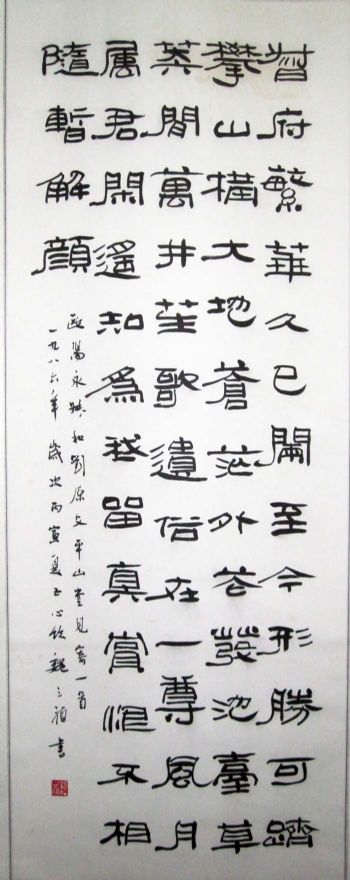 督府繁華久已闌至今形勝可躋
攀山橫大地蒼茫外花發池臺草
莽間萬井笙歌遺俗在一尊風月
属君閑遥知為我留真賞恨不相
隨暫解顔
歐陽永叔和劉原父平山堂見寄一首
一九八六年歲次丙寅夏魏之禎書